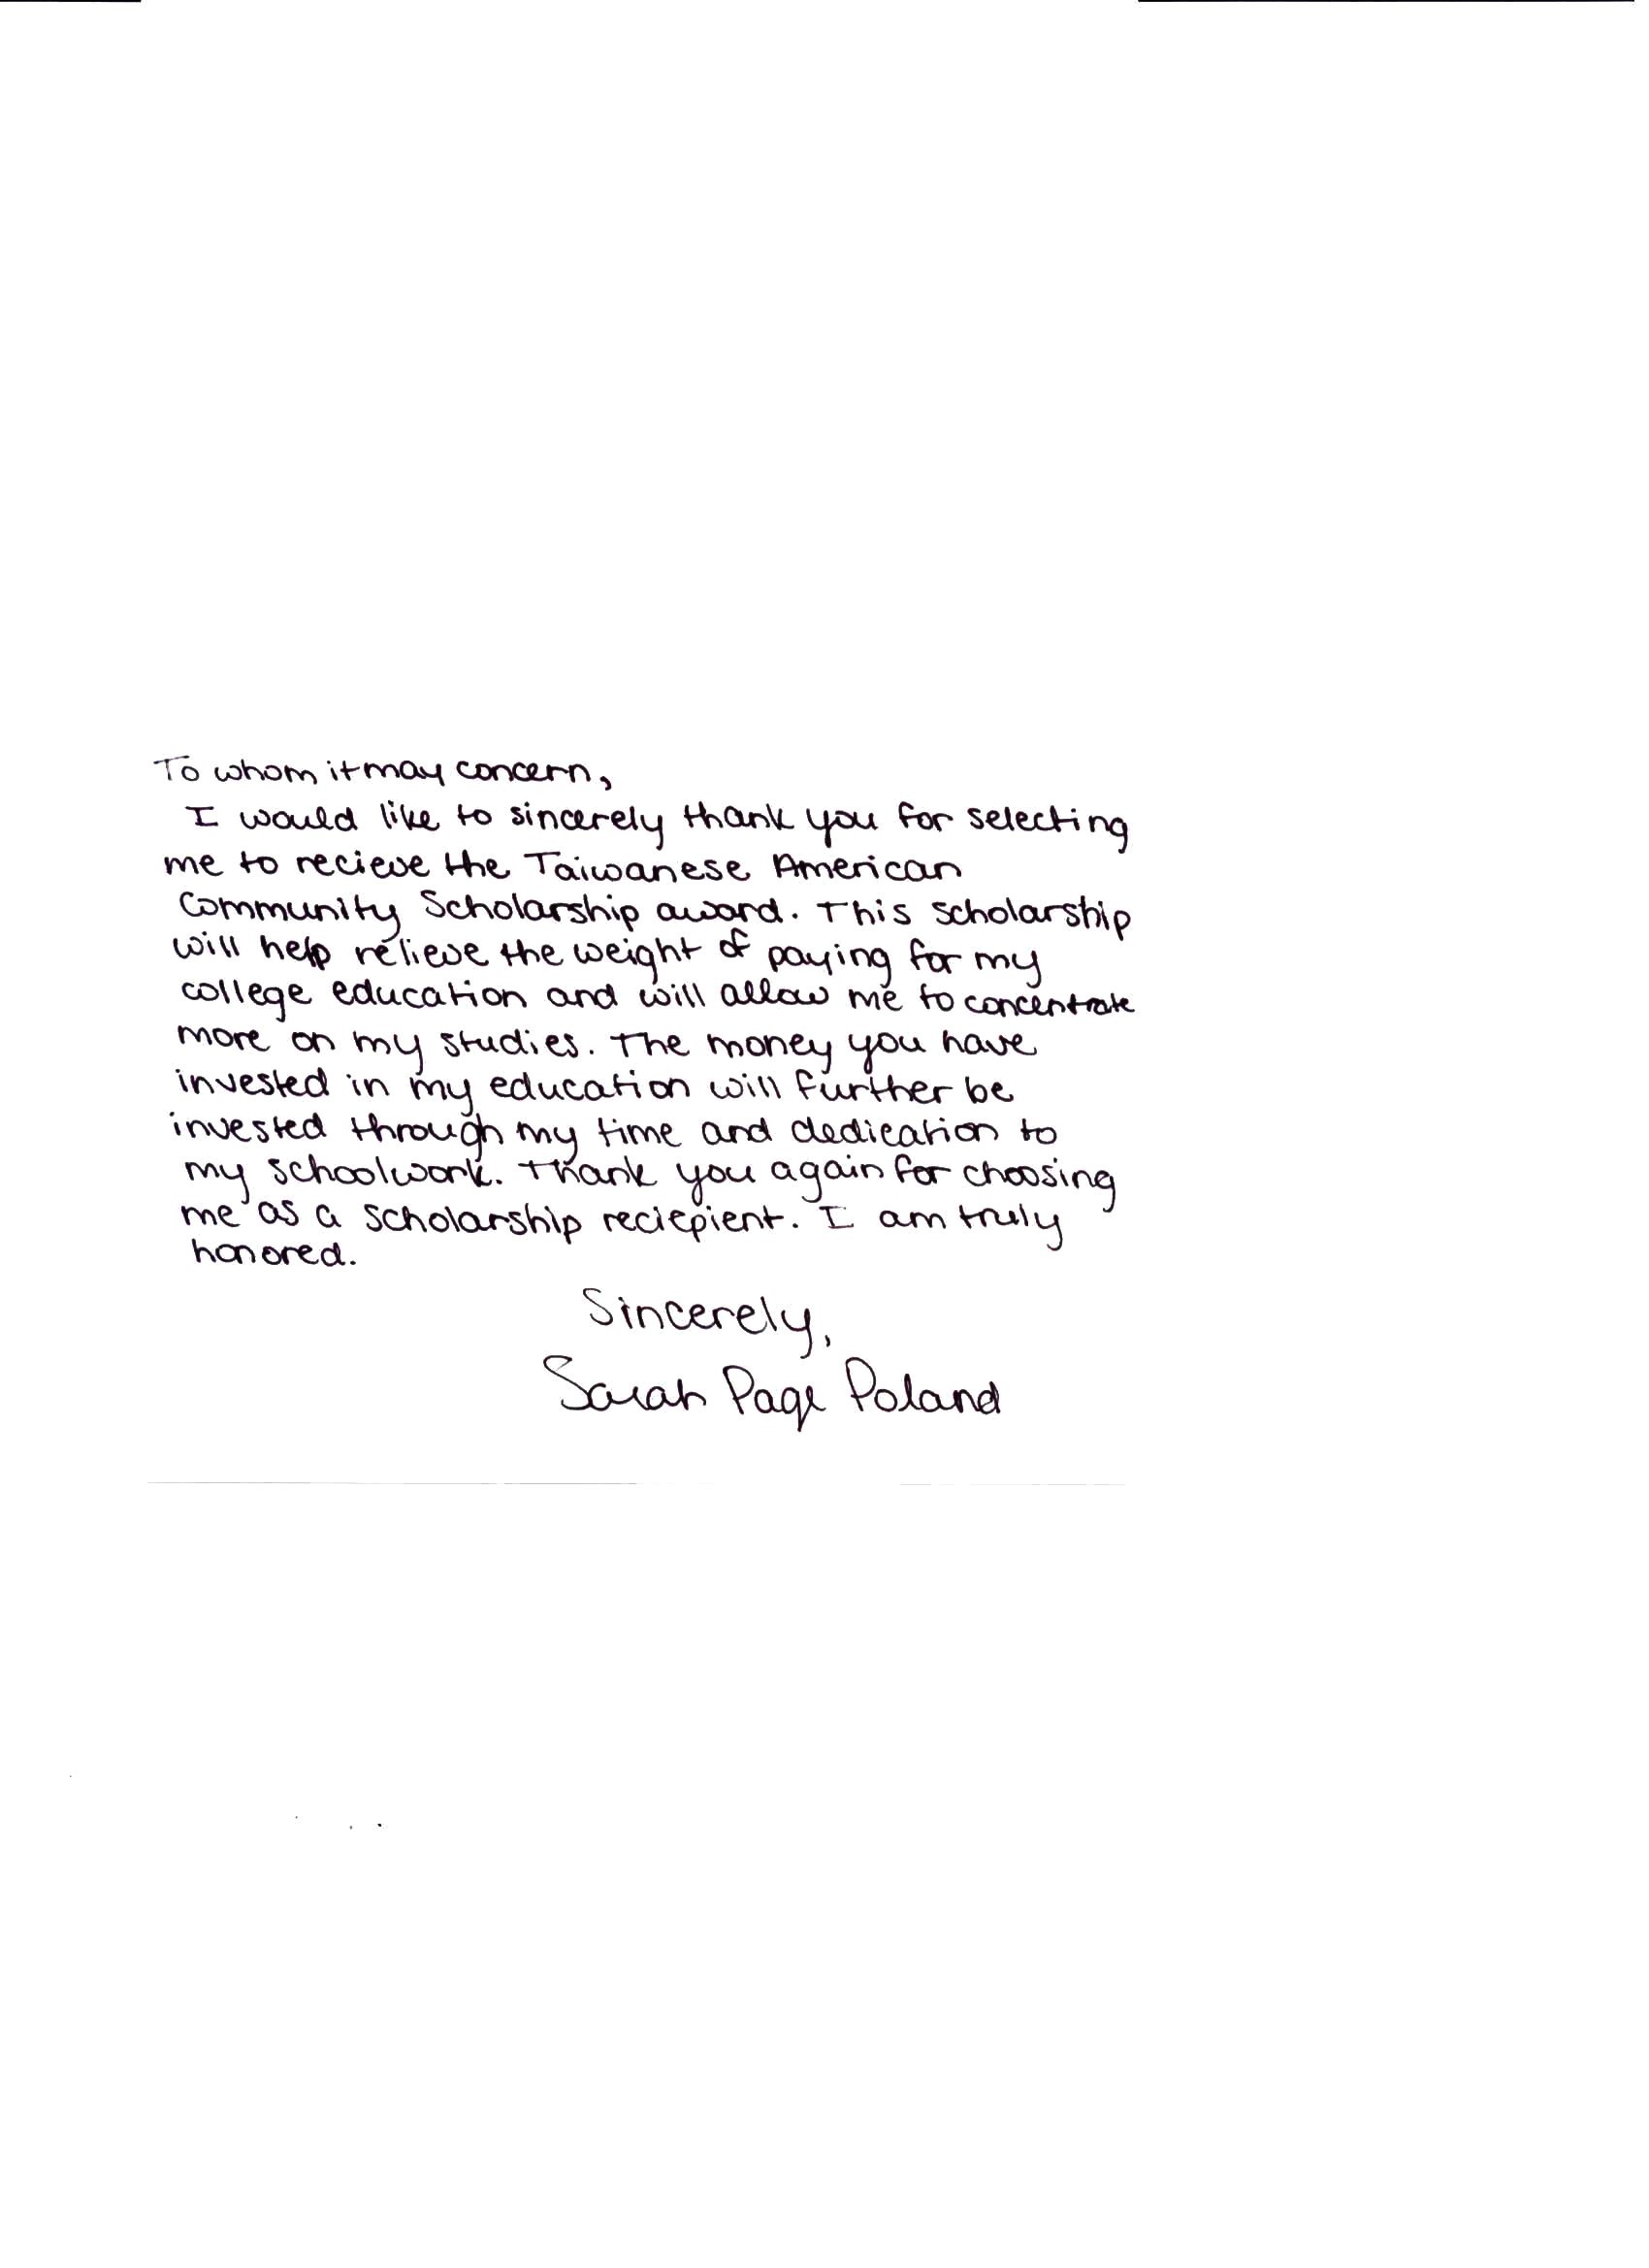 To whom it may concern,
I would like to sincerely thank you for selecting
me to recieve the Taiwanese American
Community Scholarship award. This scholarship
will help relieve the weight of paying for my
college education and will allow me to concentrate
more on my studies. The money you have
invested in my education will further be
invested through my time and dedication to
my schoolwork. Thank you again for choosing
me as a scholarship reciepient. I am truly
honored.
Sincerely,
Sarah Page Poland